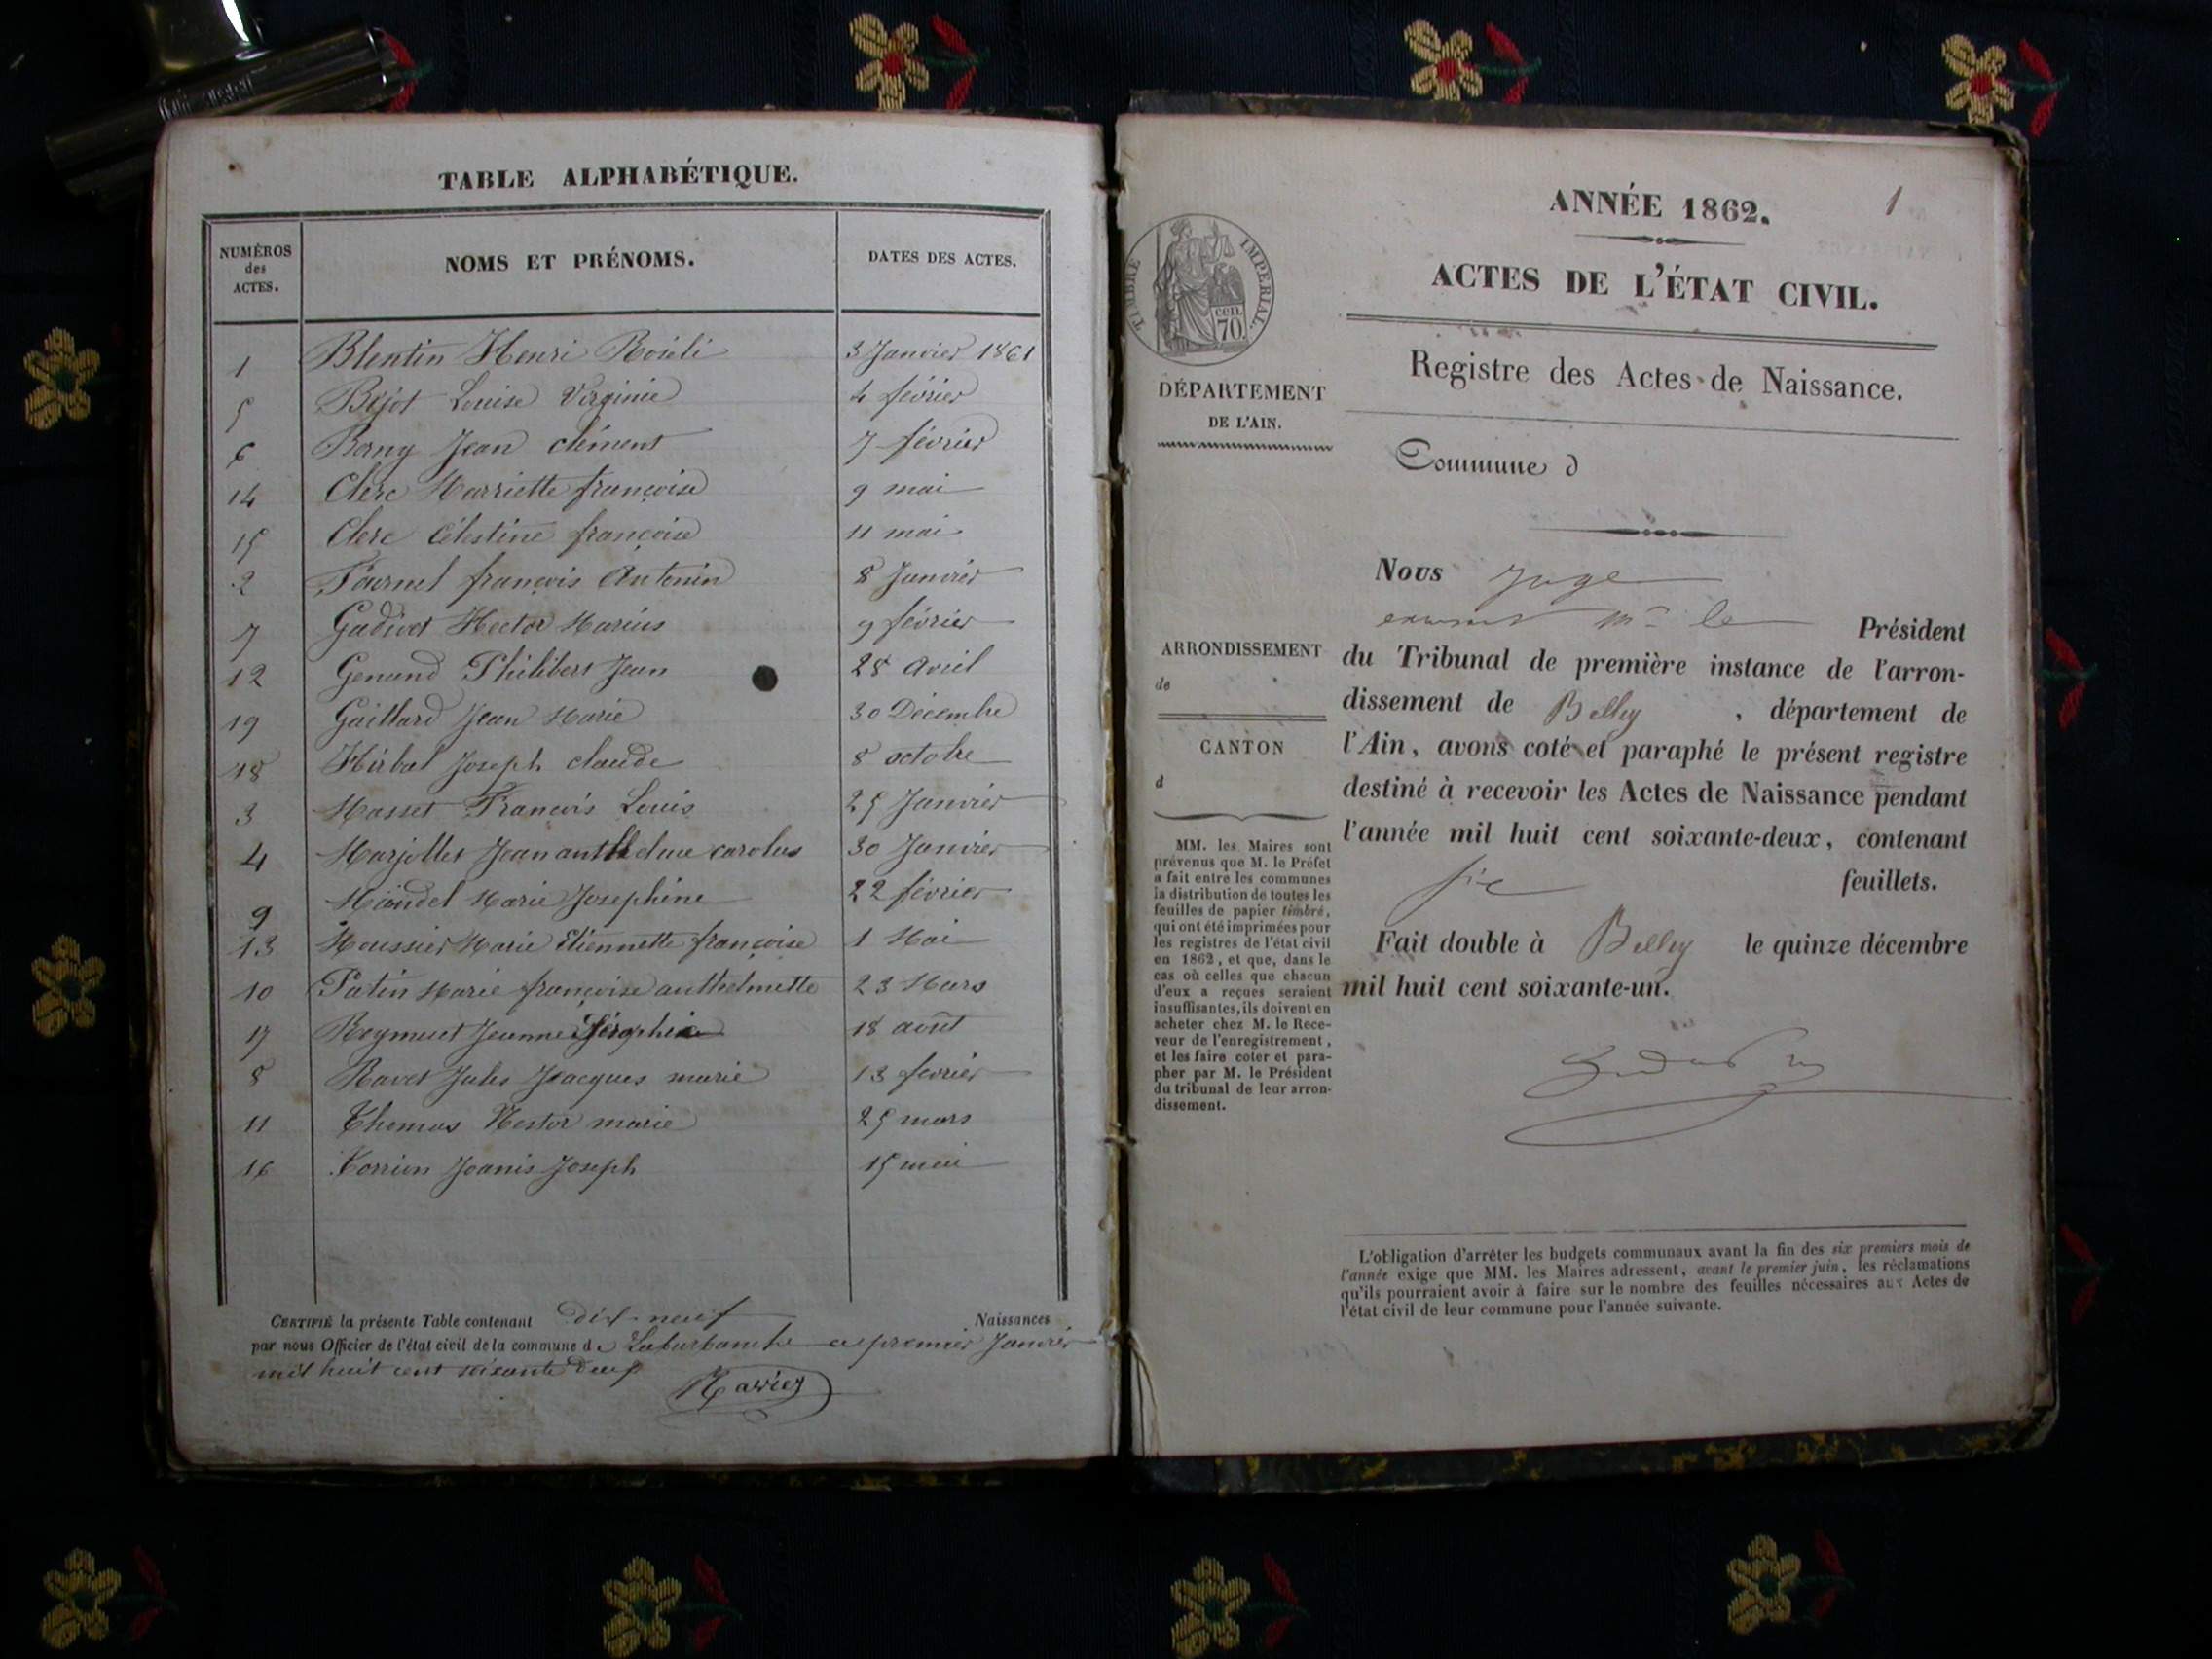 TABLE ALPHABÉTIQUE.
NUMÉROS
des
ACTES.
NOMS ET PRÉNOMS.
DATES DES ACTES.
1 Blentin Henri 3 Janvier 1861
5 Bejot Louise Virginie 4 février
6 Borny Jean clément 7 février
14 Clerc Marriette françoise 9 mai
15 Clerc Célestine françoise 11 mai
2 Fournel françois Antonin 8 Janvier
7 Gadivet Hector Marius 9 février
12 Genand Philibert Jean 28 avril
19 Gaillard Jean Marie 30 Décembre
18 Hirbal Joseph claude 8 octobre
3 Masset François Louis 25 Janvier
4 Marjollet Jean anthelme carolus 30 Janvier
9 Marie Josephine 22 février
13 Moussier Marie Etiennette françoise 1 Mai
10 Patin Marie françoise anthelmette 23 Mars
17 Jeanne 18 août
8 Ravet Jules Jacques marie 13 fevrier
11 Thomas Nestor marie 25 mars
16 Joanis Joseph 15 mai
CERTIFIÉ la présente Table contenant dix-neuf Naissances
par nous Officier de l'état civil de la commune de ce premier Janvier
mil huit cent soixante deux
1
ANNÉE 1862.
ACTES DE L'ÉTAT CIVIL.
Registre des Actes de Naissance.
TIMBRE IMPÉRIAL.
cen.
70
DÉPARTEMENT
DE L'AIN.
Commune d
Nous Juge
le Président
du Tribunal de première instance de l'arron-
dissement de Belley, département de
l'Ain, avons coté et paraphé le présent registre
destiné à recevoir les Actes de Naissance pendant
l'année mil huit cent soixante-deux, contenant
six feuillets.
Fait double à Belley le quinze décembre
mil huit cent soixante-un.
ARRONDISSEMENT
de
CANTON
d
MM. les Maires sont
prévenus que M. le Préfet
a fait entre les communes
la distribution de toutes les
feuilles de papier timbré,
qui ont été imprimées pour
les registres de l'état civil
en 1862, et que, dans le
cas où celles que chacun
d'eux a reçues seraient
insuffisantes, ils doivent en
acheter chez M. le Rece-
veur de l'enregistrement,
et les faire coter et para-
pher par M. le Président
du tribunal de leur arron-
dissement.
L'obligation d'arrêter les budgets communaux avant la fin des six premiers mois de
l'année exige que MM. les Maires adressent, avant le premier juin, les réclamations
qu'ils pourraient avoir à faire sur le nombre des feuilles nécessaires aux Actes de
l'état civil de leur commune pour l'année suivante.